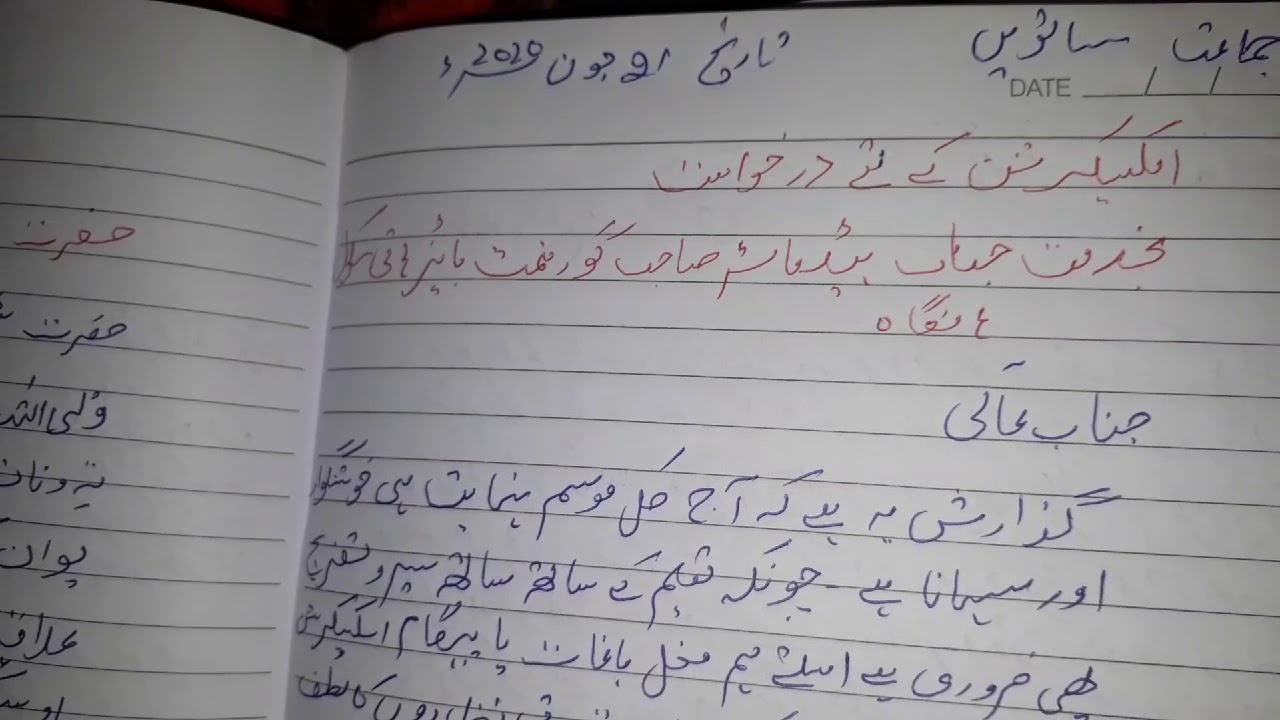 جماعت ساتویں
تاریخ 21 جون 2020ء
DATE
ایکسکرشن کے لئے درخواست
بخدمت جناب ہیڈماسٹر صاحب گورنمنٹ ہائیر ہائی سکول
جناب عالی
گذارش یہ ہے کہ آج کل موسم نہایت ہی خوشگوار
اور سہانا ہے۔ چونکہ تعلیم کے ساتھ ساتھ سیر و تفریح
بھی ضروری ہے اسلئے ہم مغل باغات یا پہلگام ایکسکرشن
کا لطف
حضرت
حضرت
ولی اللہ
پوان
علاقہ